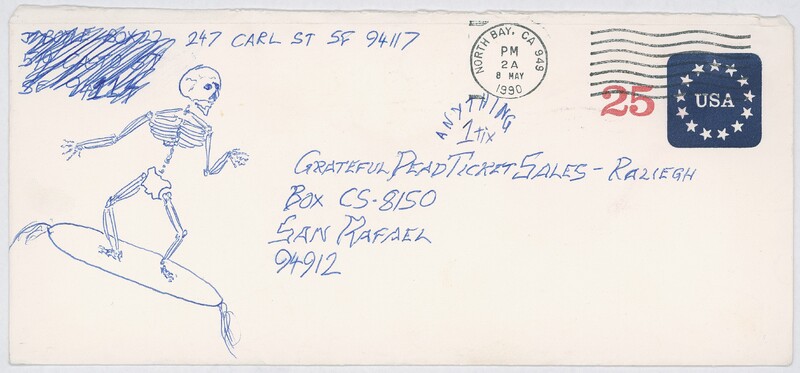 247 CARL ST SF 94117
NORTH BAY, CA 949
PM
2A
8 MAY
1990
25
USA
ANYTHING
1 tix
GRATEFUL DEAD TICKET SALES - RALIEGH
BOX CS-8150
SAN RAFAEL
94912